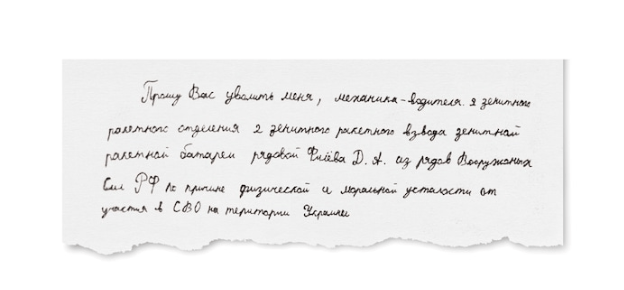 Прошу Вас уволить меня, механика-водителя 2 зенитного
ракетного отделения 2 зенитного ракетного взвода зенитной
ракетной батареи рядовой Д. А. из рядов Вооружоных
Сил РФ по причине физической и моральной усталости от
участия в СВО на територии Украины